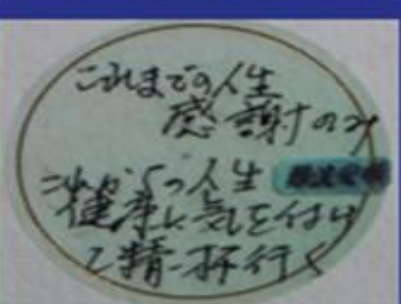 これまでの人生
感謝のみ
これからの人生
健康に気を付け
て精一杯行く